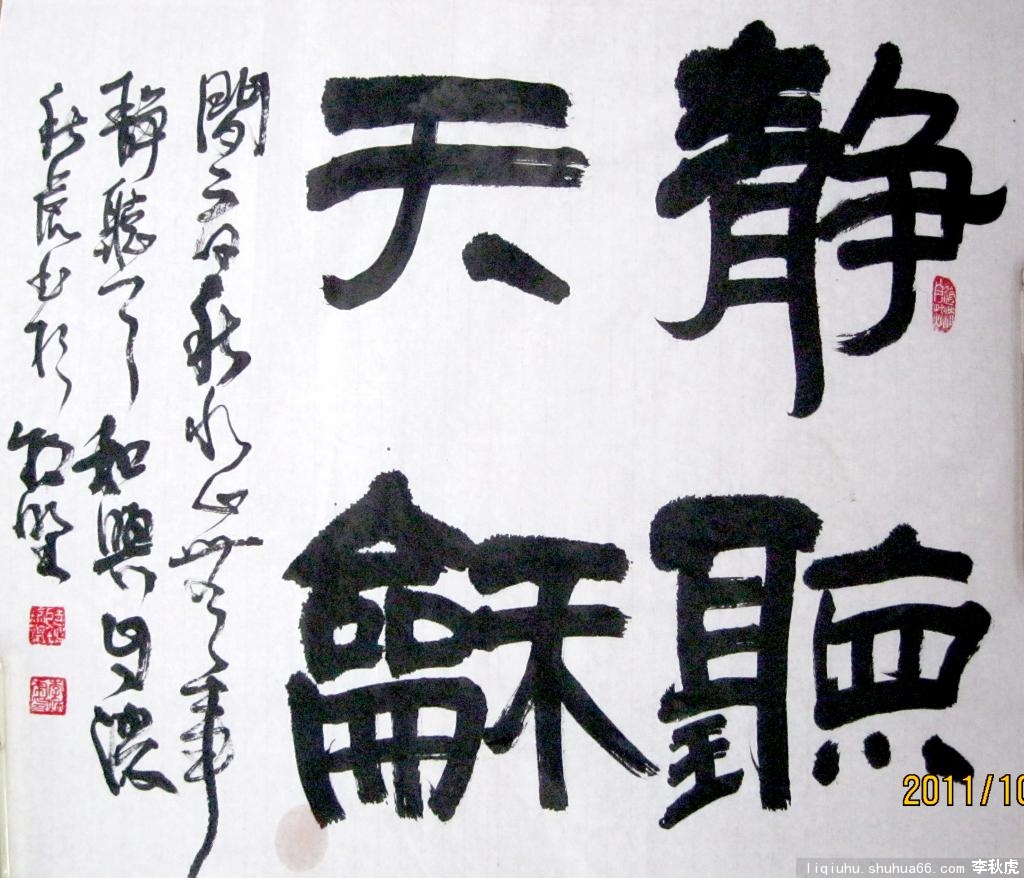 静聽
天龢
閒看秋水心無事
静聽天和興自濃
秋虎书於
2011/10
liqiuhu.shuhua66.com 李秋虎